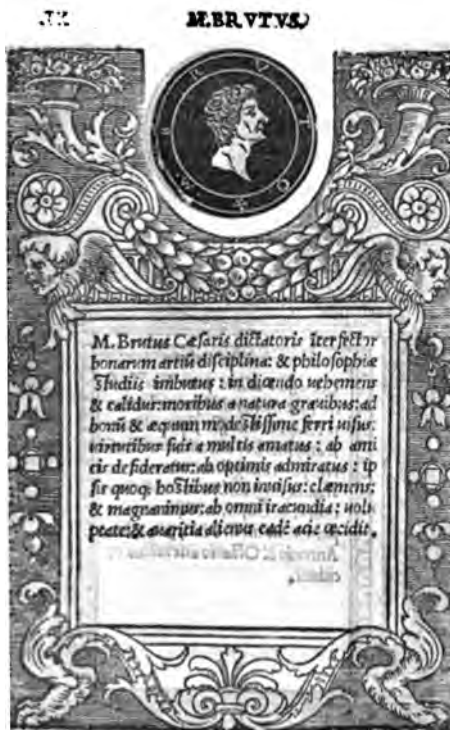 M. BRVTVS
M. Brutus Cæsaris dictatoris īterfector
bonarum artiū disciplina: & philosophiæ
studiis imbutus: in dicendo uehemens
& calidus: moribus a natura grauibus: ad
bonū & æquum modestissime ferri uisus:
uirtutibus suis a multis amatus: ab ami
cis desideratus: ab optimis admiratus: ip
sis quoq; hostibus non inuisus: clæmens:
& magnanimus: ab omni iracundia: uolu
ptate: & auaritia alienus eadē acie occidit.